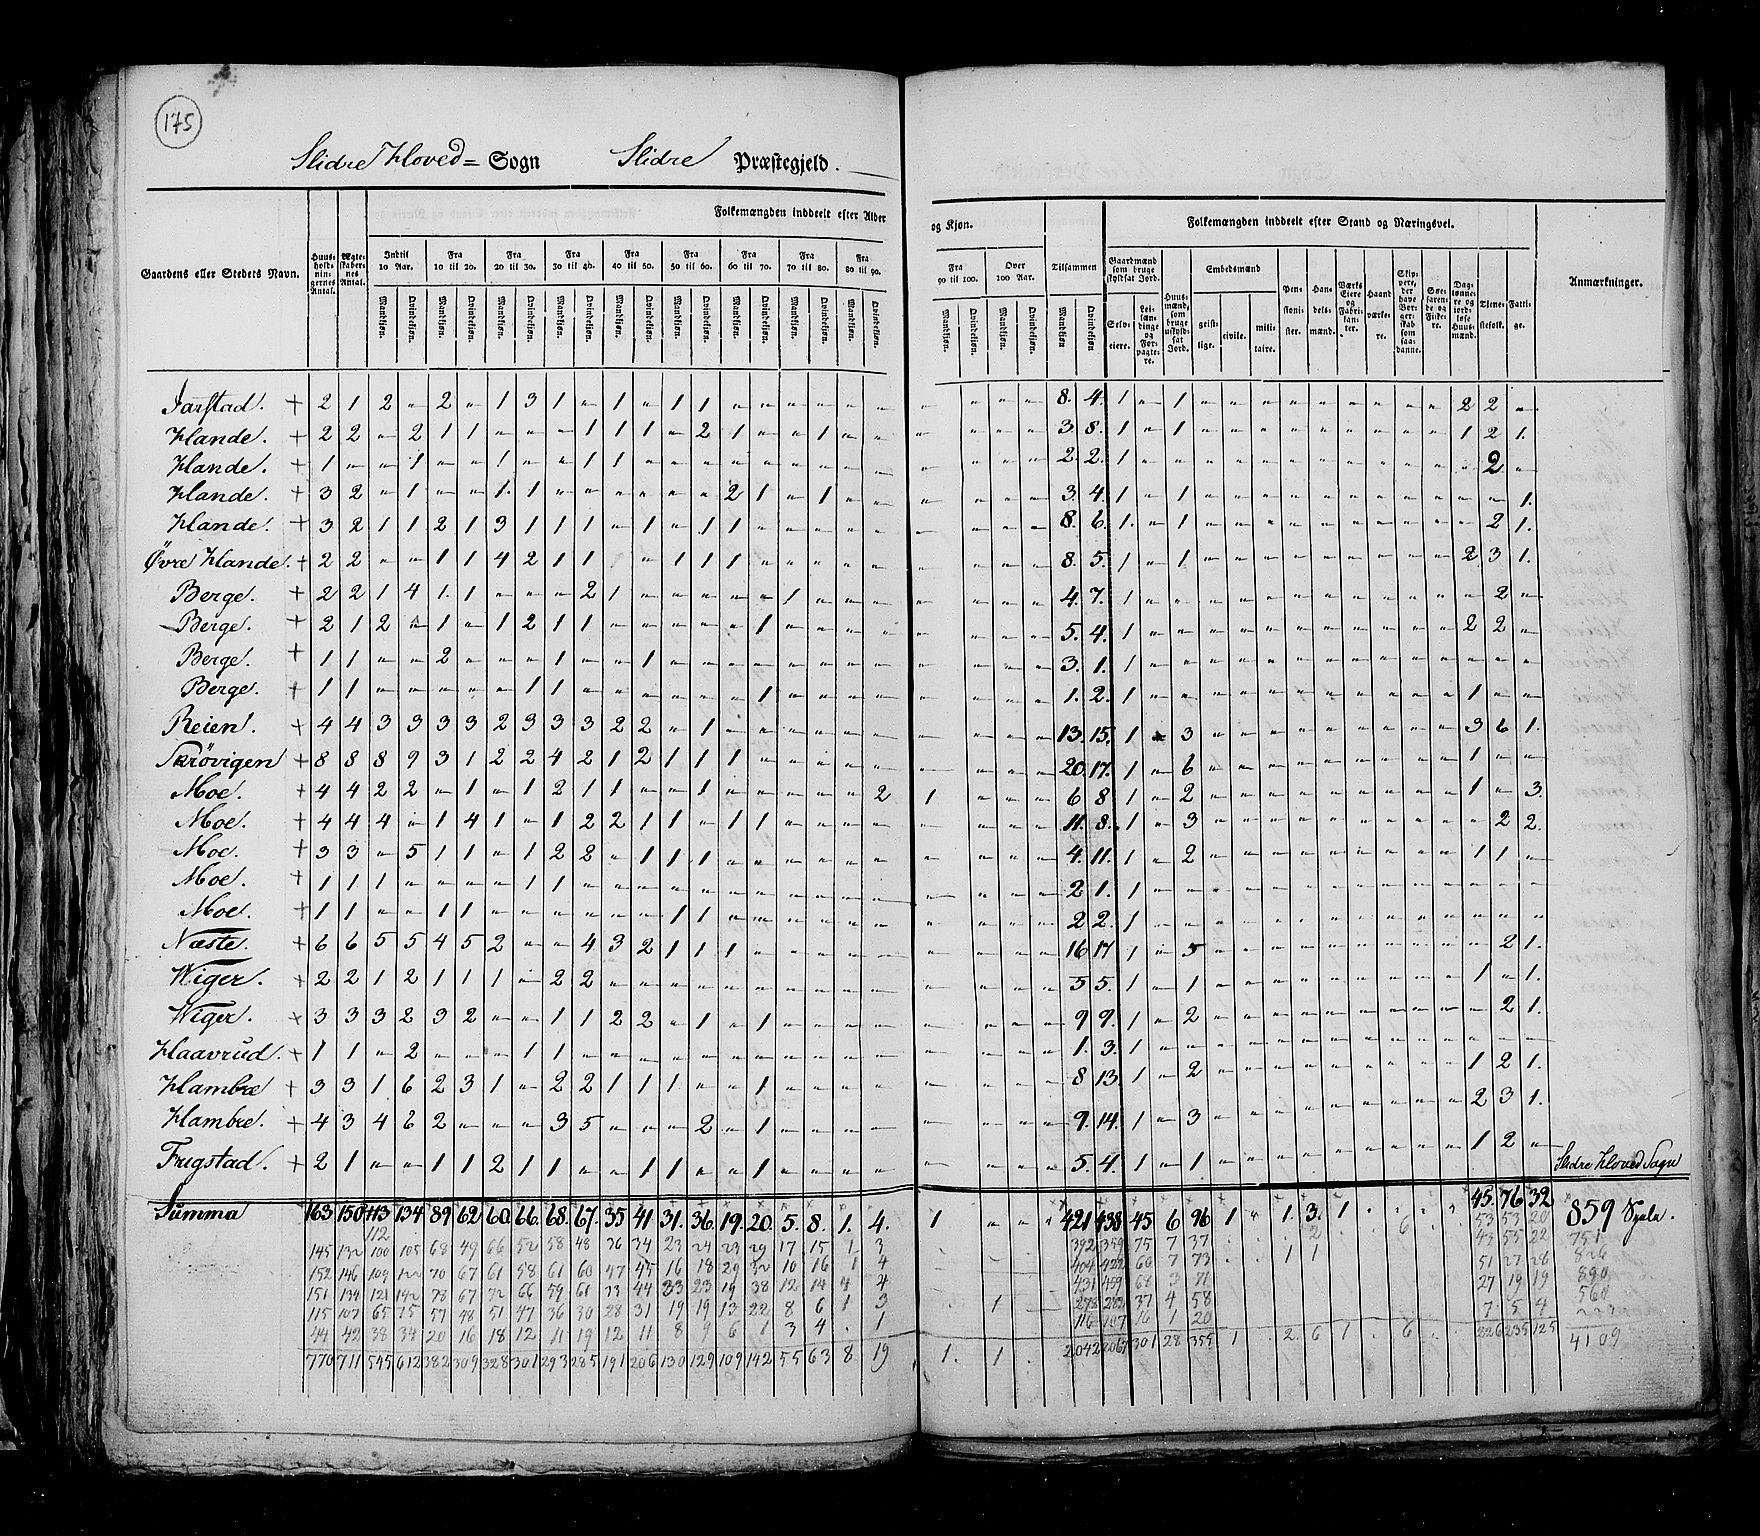 175
Slidre Hoved= Sogn Slidre Præstegjeld.
Folkemængden inddeelt efter Alder og Kjøn. Folkemængden inddeelt efter Stand og Næringsvei.
Gaardens eller Stedets Navn. Huusholdningernes Antal. Ægteskabernes Antal. Indtil 10 Aar. Fra 10 til 20. Fra 20 til 30. Fra 30 til 40. Fra 40 til 50. Fra 50 til 60. Fra 60 til 70. Fra 70 til 80. Fra 80 til 90. Fra 90 til 100. Over 100 Aar. Tilsammen Gaardmænd som bruge skyldsat Jord. Huusmænd, som bruge uskyldsat Jord. Embedsmænd Pensionister. Handelsmænd. Værks Eiere og Fabrikanter. Haandværkere. Skippere, der have Borgerskab som saadanne. Søefarende og Fiskere. Daglønnere og jordløse Huusmænd. Tjenestefolk. Fattige. Anmærkninger.
Mandkjøn. Qvindekjøn. Selveiere. Leilændinge og Forpagtere. geistlige. civile. militaire.
Jarstad. + 2 1 2 " 2 " 1 3 1 " 1 " 1 1 8. 4. 1 " 1 2 2 "
Hande. + 2 2 " 2 1 1 " " " 1 1 1 " 2 1 " " 1 3 8. 1 " 1 1 2 1.
Hande. + 1 " " 1 " " 1 " " 1 1 2 2. 1 2 "
Hande. + 3 2 " 1 " " 1 1 " " " " " " 2 1 " 1 3 4. 1 " 1 " " 1.
Hande. + 3 2 1 1 2 1 3 1 1 1 " 1 " 1 1 8. 6. 1. " 1 " 2 1.
Øvre Hande. + 2 2 " " 1 1 4 2 1 1 " 1 1 1 8. 5. 1 " 1 2 3 1.
Berge. + 2 2 1 4 1. 1 " " " 2 1 " " " " " 1 4. 7. 1 " 2 "
Berge. + 2 1 2 " 1 " 1 2 1 1 " " " " " 1 5. 4. 1 2 2 "
Berge. + 1 1 " " 2 " " " 1 " " 1 3. 1. 1
Berge. + 1 1 " " " " " 1 1 " " " " " " 1 1. 2. 1 1 "
Reien. + 4 4 3 3 3 3 2 3 3 3 2 2 " 1 13. 15. 1 " 3 3 6 1.
Skrövigen + 8 8 8 9 3 1 2 2 4 2 1 2 1 1 1 20. 17. 1 " 6 1 "
Moe. + 4 4 2 2 " 1 " 1 2 1 1 " " 1 " " " " " 2 1 6 8 1 " 2 1 " 3.
Moe. + 4 4 4 " 1 4 1 " 1 2 2 1 1 " 1 1 11. 8. 1 " 3 " 2 2.
Moe. + 3 3 " 5 1 1 " 1 2 2 " 1 1 1 4. 11. 1 " 2 1 1 "
Moe. + 1 1 1 " " " " 1 1 2 1. 1
Moe. + 1 1 " " 1 1 " " " " " " 1 1 2 2. 1
Næste. + 6 6 5 5 4 5 2 " " 4 3 2 1 1 1 16 17 1 " 5 " 2 1.
Wiger. + 2 2 1 2 1 1 1 " 2 2 5 5. 1 " 1 1 " 1.
Wiger. + 3 3 3 2 3 2 " " 1 1 2 2 " 1 " 1 9 9. 1 " 2 " 2 1.
Haavrud. + 1 1 " 2 " " " 1 1 1. 3. 1
Hambre + 3 3 1 6 2 3 1 " 2 2 1 1 1 " " 1 8 13. 1 " 2 1 2 1.
Hambre. + 4 3 4 6 2 " " " 3 5 " " " 2 " 1 9. 14. 1 " 3 2 3 1.
Frigstad. + 2 1 " " 1 1 2 1 1 " " 1 1 " " 1 5. 4. 1 " 1 1 2 "
Slidre Hoved Sogn
Summa 163 150 113 134 89 62 60. 66. 68. 67. 35 41 31. 36. 19. 20. 5. 8. 1. 4. 1 " " " 421 438 45 6 96 1 " 1. 3. 1 45. 76 32 859 Sjæle.
112
145 132 100 105 68 49 66 52 58 48 36 34 23 24 23 29 17 15 1 3 392 359 75 7 37 2 6 53 53 20 751
152 146 109 122 70 67 61 58 61 60 47 45 16 18 29 32 10 16 1 4 404 422 60 7 73 1 1 43 55 22 826
151 134 121 142 78 67 72 66 59 61 33 44 33 23 19 38 12 14 4 4 431 459 68 3 71 51 27 28 890
115 107 65 75 57 48 51 47 36 30 28 31 19 19 13 22 8 6 1 3 1 278 282 37 4 58 27 19 19 560
44 42 38 34 20 16 18 12 11 19 12 11 8 9 6 1 3 4 . 1 116 107 16 1 20 7 5 4 223
770 711 545 612 382 309 328 301 293 285 191 206 130 129 109 142 55 63 8 19 1. 1 2042 2067 301 28 355 1 2 6 1 6 226 235 125 4109